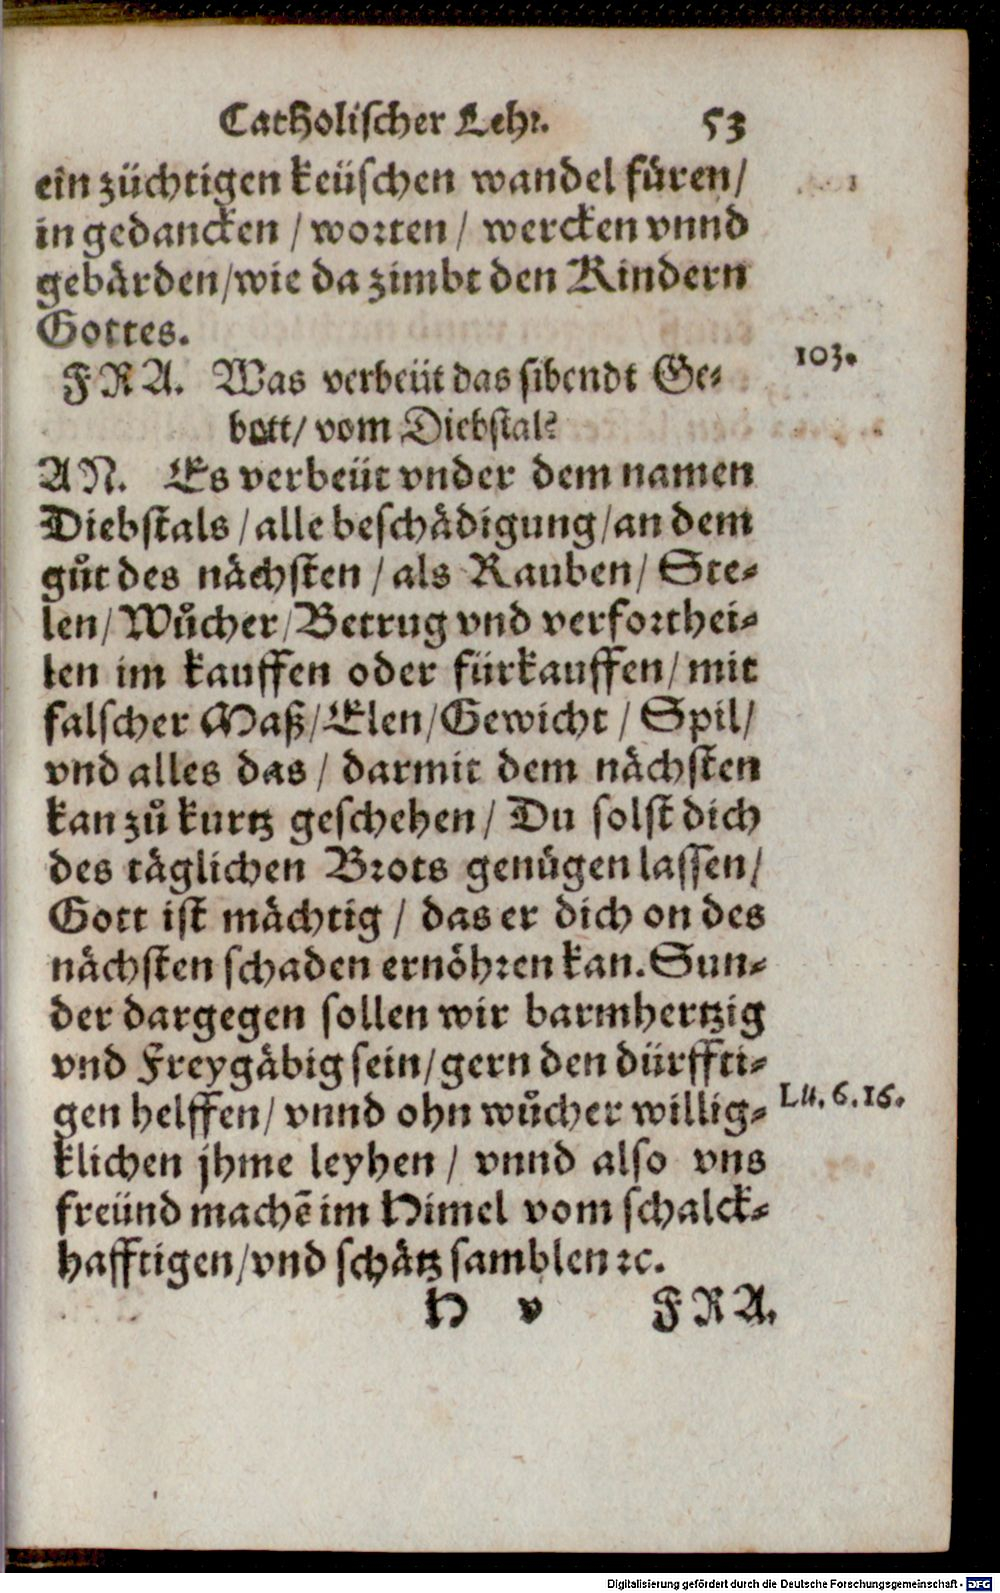 Catholischer Lehr. 53
ein züchtigen keüschen wandel füren/
in gedancken / worten / wercken vnnd
gebärden/wie da zimbt den Kindern
Gottes.
FRA. Was verbeüt das sibendt Ge-
bott/ vom Diebstal?
103.
AN. Es verbeüt vnder dem namen
Diebstals / alle beschädigung/an dem
gůt des nächsten / als Rauben/ Ste-
len/ Wůcher/Betrug vnd verforthei-
len im kauffen oder fürkauffen/ mit
falscher Maß/Elen/Gewicht / Spil/
vnd alles das / darmit dem nächsten
kan zů kurtz geschehen/ Du solst dich
des täglichen Brots genügen lassen/
Gott ist mächtig / das er dich on des
nächsten schaden ernöhren kan. Sun-
der dargegen sollen wir barmhertzig
vnd Freygäbig sein/gern den dürffti-
gen helffen/ vnnd ohn wůcher willig-
Lu. 6. 16.
klichen jhme leyhen / vnnd also vns
freünd machẽ im Himel vom schalck-
hafftigen/vnd schätz samblen ꝛc.
H v FRA.
Digitalisierung gefördert durch die Deutsche Forschungsgemeinschaft - DFG